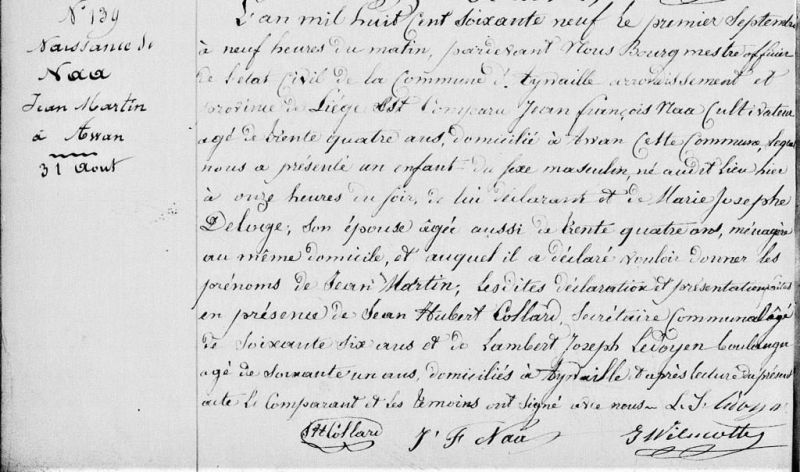 N° 139
Naissance de
Naa
Jean Martin
à Awan
31 Aout
L'an mil huit cent soixante neuf le premier Septembre
à neuf heures du matin, pardevant Nous Bourgmestre officier
de l'état Civil de la Commune d'Aywaille arrondissement et
province de Liége Est Comparu Jean François Naa Cultivateur
agé de trente quatre ans, domicilié à Awan Cette Commune, lequel
nous a présenté un enfant du sexe masculin, né audit lieu hier
à onze heures du soir, de lui déclarant et de Marie Josephe
Deloge, son épouse âgée aussi de trente quatre ans, ménagère
au même domicile, et auquel il a déclaré vouloir donner les
prénoms de Jean Martin; lesdites déclaration et présentation faites
en présence de Jean Hubert Collard, Secrétaire Communal âgé
de soixante six ans et de Lambert Joseph Ledoyen
agé de soixante un ans, domiciliés à Aywaille et après lecture du présent
acte le Comparant et les témoins ont signé avec nous L. J.
JH Collard J F Naa